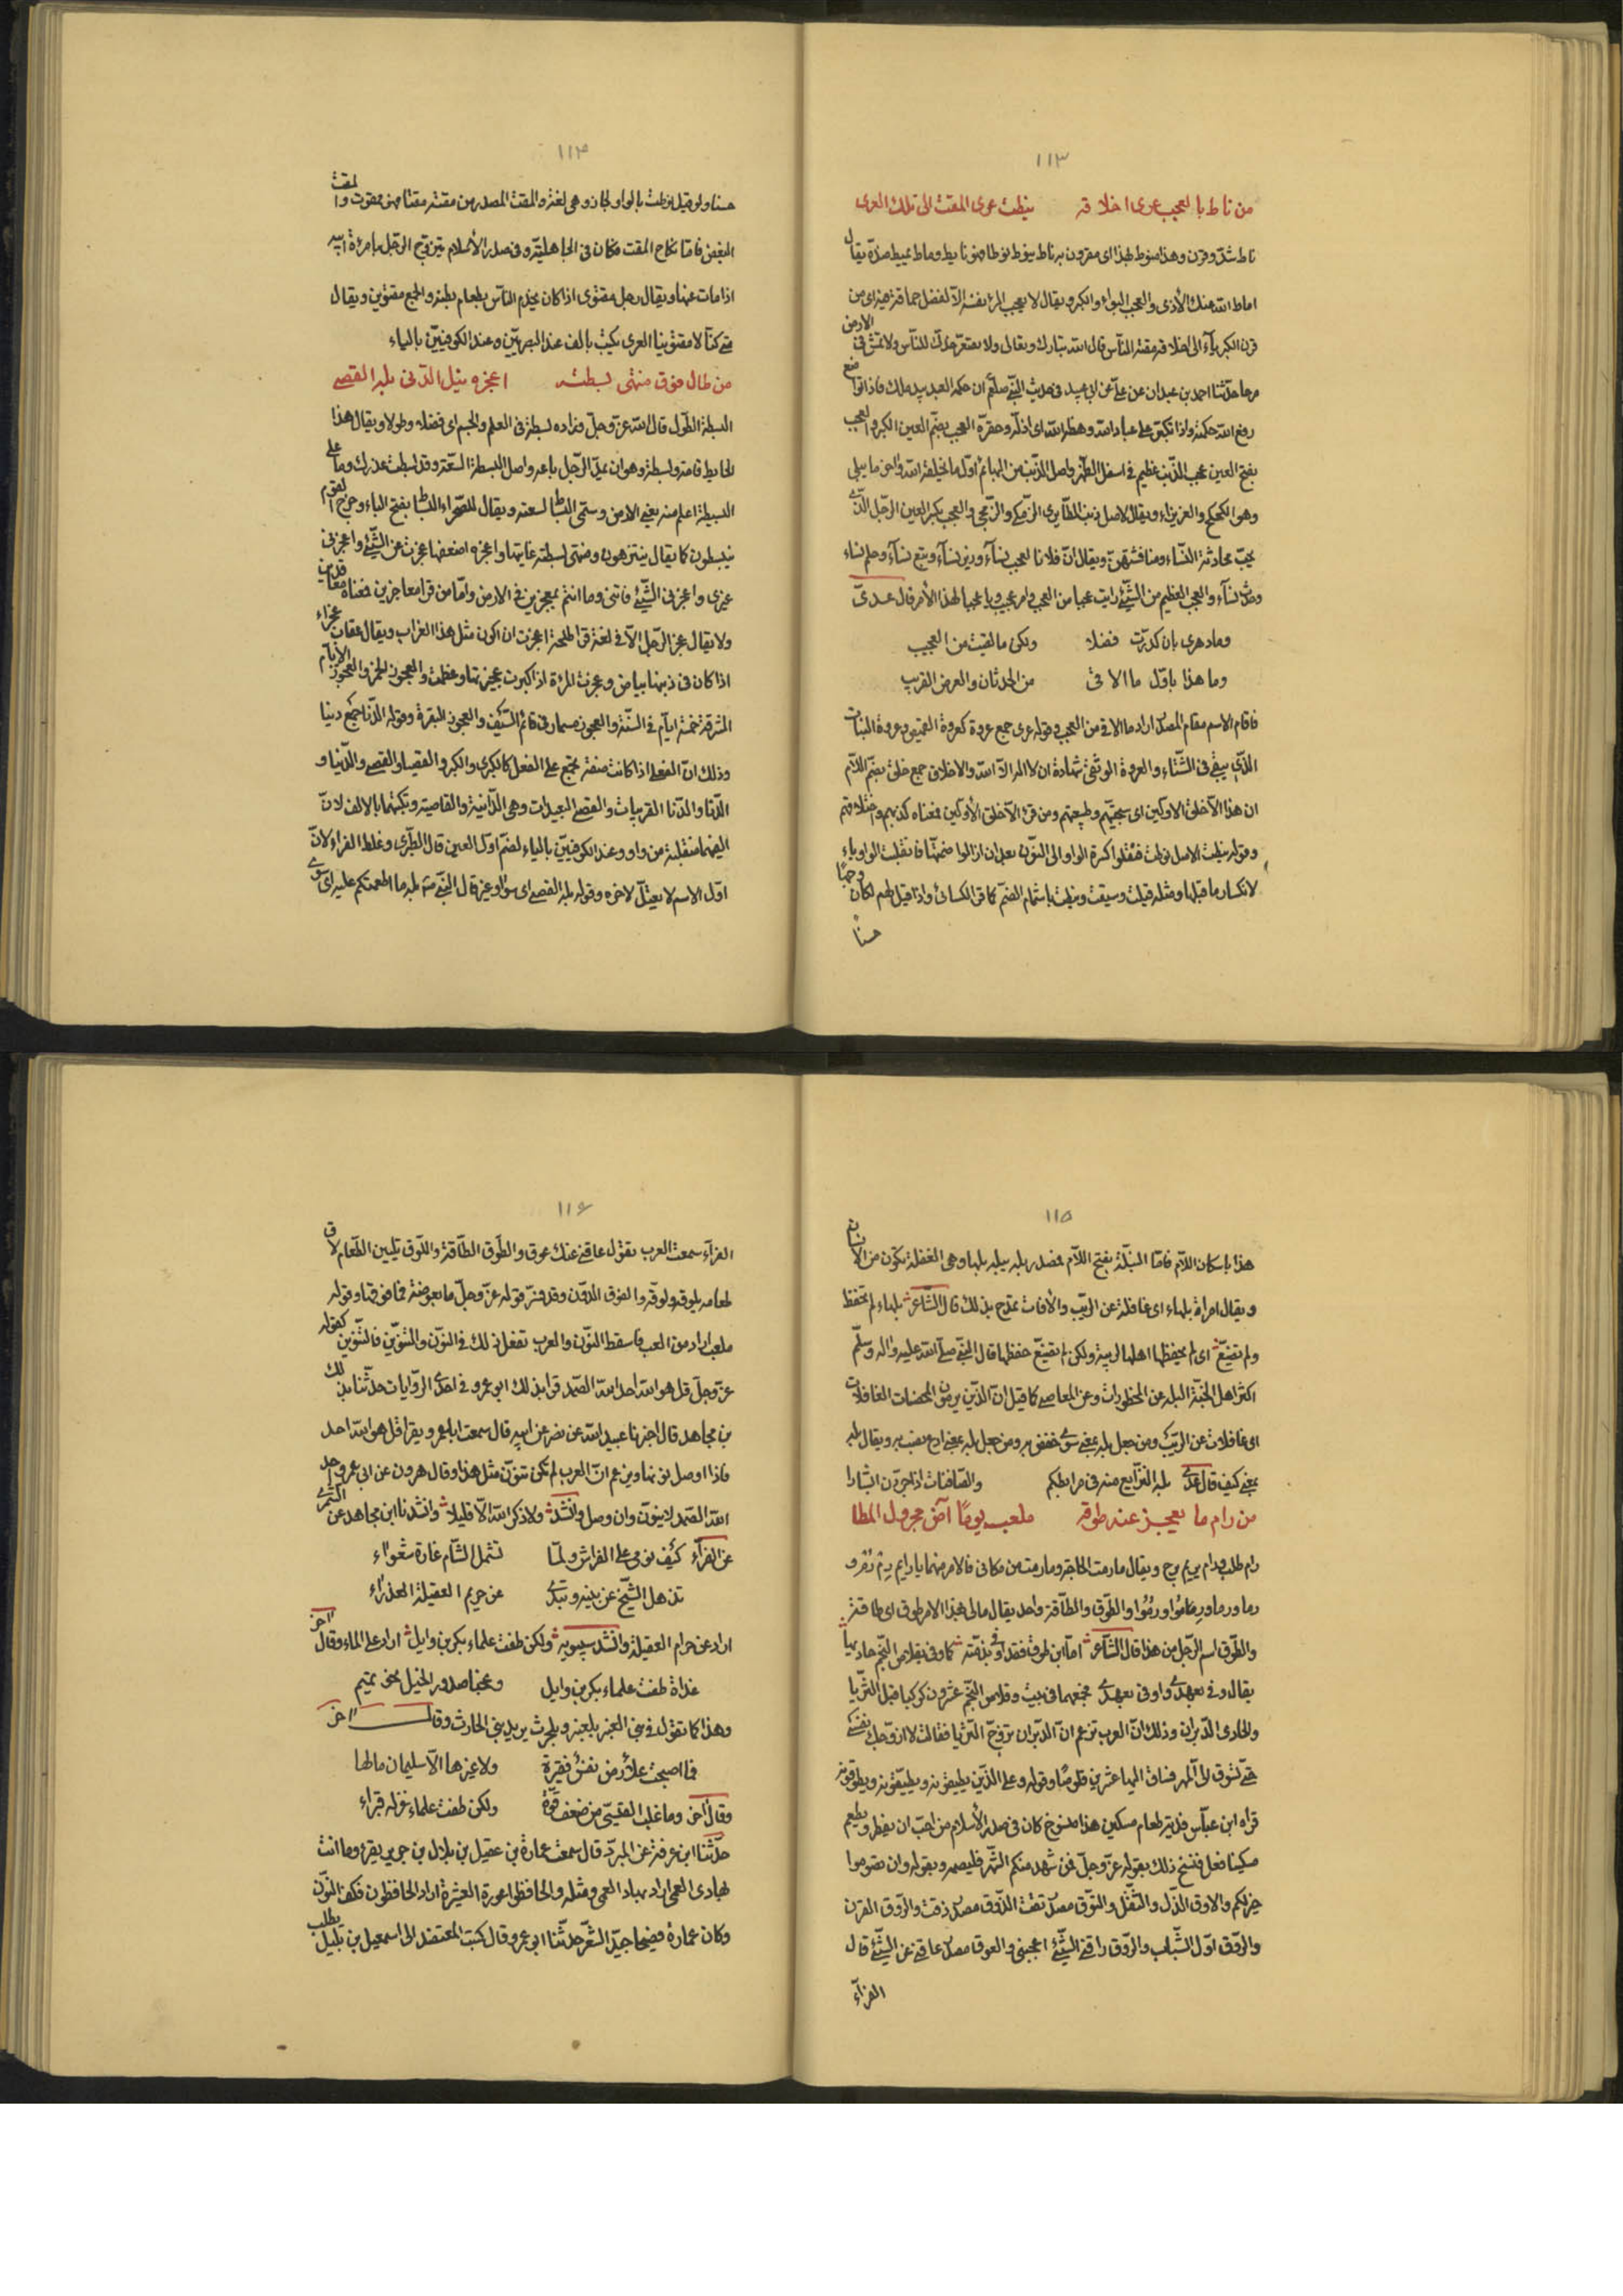 ١١٣
من ناط بالعجب عرى اخلاقه نيطت عرى المقت الى تلك العرى
ناط شدّ وقرن وهذا منوط بهذا اى مقرون به ناط ينوط نوطا فهو نايط وماط يميط ضدّه يقال
اماط الله عنك الأذى والعجب البواء والكبر ويقال لا يعجب المرء بنفسه الّا لفضل حماقته فمن
قرن الكبرياء الى اخلاقه مقته النّاس قال الله تبارك وتعالى ولا تصعّر خدّك للنّاس ولا تمش فى الارض
مرحا حدّثنا احمد بن عبدان عن علىّ عن ابى عبيد فى حديث النّبى صلّعم ان حكمة العبد بيد ملك فاذا تواضع
رفع الله حكمته واذا تكبّر على عباد الله وهطه الله اى اذلّه وحقره العجب بضمّ العين الكبر والعجب
بفتح العين عجب الذّنب عظيم فى اسفل الظّهر واصل الذّنب من البهائم اوّل ما يخلقه الله واخر ما يبلى
وهى الكحكح والعزيزاء ويقال لاصل ذنب الطّاير الزّمكى والزّمجى والعجب بكسر العين الرّجل الّذى
يحبّ محادثة النّساء ومنافشتهنّ ويقال انّ فلانا لعجب نسآء وزير نسآء وتبع نسآء وخلم نساء
وحدث نسآء والعجب العظيم من الشّىء رايت عجبا من العجب وامر عجيب ويا عجبا لهذا الأمر قال عدىّ
وما دهرى بان كدرت فضلا ولكن ما لقيت من العجيب
وما هذا باوّل ما الاقى من الحدثان والعرض القريب
فاقام الاسم مقام المصدر اراد ما الاقى من العجب وقوله عرى جمع عروة كعروة القميص وعروة النبات
الّذى يبقى فى الشّتاء والعروة الوثقى شهادة ان لا اله الّا الله والاخلاق جمع خلق بضمّ اللّام
ان هذا الّا خلق الاوّلين اى سجيّتهم وطبيعتهم ومن قرئ الّا خلق الأوّلين فمعناه كذبهم واختلاقهم
وقوله نيطت الاصل نوطت فنقلوا كسرة الواو الى النّون بعد ان ازالوا ضمّتها فانقلبت الواو ياء
لانكسار ما قبلها ومثله قيلت وسيقت ونيطت باشمام الضمّ كما قرا الكسائى واذا قيل لهم لكان وجهًا
حسنا
١١٤
حسنا ولو قيل نوطت بالواو لجاز وهى لغة والمقت المصدر من مقته مقتا فهو ممقوت والمقت
البغض فامّا نكاح المقت فكان فى الجاهليّة وفى صدر الأسلام يتزوّج الرّجل بامرءة ابيه
اذا مات عنها ويقال رجل مقتوى اذا كان يخدم النّاس بطعام بطنه والجمع مقتوين ويقال
متى كنّا لامّك مقتوينا العرى يكتب بالف عند البصريّين وعند الكوفيّين بالياء
من طال فوق منتهى بسطته اعجزه نيل الدّنى بله القصى
البسطة الطّول قال الله عزّ وجلّ وزاده بسطة فى العلم والجسم اى فضلا وطولا ويقال هذا
الحايط قامة وبسطة وهو ان يمدّ الرّجل باعه واصل البسطة السّعة وقد بسطت عذرك وما على
البسيطة اعلم منه يعنى الارض وسمّى البساط لسعته ويقال للصّحراء البساط بفتح الباء وخرج القوم
ينبسطون كما يقال يتنزهون ومنتهى بسطته غايتها واعجزه اضعفه اعجزت عن الشّىء واعجزنى
غيرى واعجزنى الشّىء فاتنى وما انتم بمعجزين فى الارض وامّا من قرا معاجزين فمعناه معاندين
ولا يقال عجز الرّجل الّا فى لغة قرا طلحة اعجزت ان اكون مثل هذا الغراب ويقال عقاب عجزاء
اذا كان فى ذنبها بياض وعجزت المرءة اذا كبرت عجيزتها وعظمت والعجوز الخمر والعجوز الأيّام
المشرقة خمسة ايّام فى السّنة والعجوز مسمار فى قائم السّيف والعجوز البقرة وقوله الدّنا جمع دنيا
وذلك انّ الفعلى اذا كانت صفة تجمع على الفعل كالكبرى والكبر والقصيا والقصى والدّنيا و
الدّنا والدّنا القريبات والقصى البعيدات وهى الدّانية والقاصية وتكتبهما بالالف لانّ
اليهما منقلبة من واو وعند الكوفيّين بالياء لضمّ اوّل العين قال الطّبرى وغلط الفراء لانّ
اوّل الاسم لا يعتلّ لاخره وقوله بله القصى اى سوا وغير قال النّبى صم بله ما اطعمتكم عليه اى سوى
١١٥
هذا باسكان اللّام فامّا البَلَه بفتح اللّام فمصدر بله يبله بلها وهى الغفلة تكون من الانسان
ويقال امراة بلهاء اى غافلة عن الرّيب والأفات تمدح بذلك قال الشّاعر بلهاء لم تحفظ
ولم تضيّع اى لم يحفظها اهلها لريبة ولكن لم تضيّع حفظها قال النّبى صلّى الله عليه واله وسلّم
اكثر اهل الجنّة البله عن المحظورات وعن المعاصى كما قيل انّ الّذين يرمون المحصنات الغافلات
اى غافلات عن الرّيب ومن جعل بله بمعنى سوى خفض به ومن جعل بله بمعنى دع نصب به ويقال بله
بمعنى كيف قال عدىّ بله النّزايع منه فى مرابطكم والصّافنات اذا جرّدن السّارا
من رام ما يعجز عنه طوقه ملعب يومًا آض مجزول المطا
رام طلب ورام يريم برح ويقال ما رمت الحاجة وما رمت من مكانى فالامر منهما يا رايم رِم رُم و
رما ورما وريموا ورُوموا والطّوق والطّاقة واحد يقال مالى بهذا الامر طوق اى طاقة
والطّوق اسم الرّجل من هذا قال الشّاعر امّا ابن طوق فقد اوفى بذمّته كما وفى بقلاص النّجم حاديها
يقال وفى بعهدى واوفى بعهدى فجمعهما فى بيت وقلاص النّجم عشرون كوكبا قبل الثّريّا
والحادى الدّبران وذلك انّ العرب تزعم انّ الدّبران تزوّج الثّريّا فقالت لا ازوّجك نفسى
حتّى تسوق الىّ المهر فساق اليها عشرين قلوصًا وقوله وعلى الّذين يطيقونه ويطيّقونه ويطوّقونه
قراه ابن عبّاس فدية طعام مسكين هذا منسوخ كان فى صدر الأسلام من احبّ ان يفطر ويطعم
مسكينا فعل فنسخ ذلك بقوله عزّ وجلّ فمن شهد منكم الشّهر فليصمه وبقوله وان تصوموا
خير لكم والاوق الذّل والثّقل والتّوق مصدر تقت الذّوق مصدر ذقت والرّوق القرن
والرّوق اوّل الشّباب والرّوق راقنى الشّىء اعجبنى والعوق مصدر عاقنى عن الشّىء قال
الفرّآء
١١٦
الفرّآء سمعت العرب تقول عاقنى عنك عوق والطّوق الطّاقة واللّوق تليين الطّعام لاق
طعامه يلوقه ولوّقه والفوق الدّون وقد فسّر قوله عزّ وجلّ ما بعوضة فما فوقها وقوله
ملعب اراد من العب فاسقط النّون والعرب تفعل ذلك فى النّون والتّنوين فالتّنوين كقوله
عزّ وجلّ قل هو الله احد الله الصّمد قرا بذلك ابو عمرو فى احدى الرّوايات حدّثنا بذلك
بن مجاهد قال اخبرنا عبيد الله عن نصر عن ابيه قال سمعت ابا عمرو يقرا قل هو الله احد
فاذا اوصل نوّنها وزعم انّ العرب لم تكن تنوّن مثل هذا وقال هرون عن ابى عمرو احد
الله الصّمد لا ينوّن وان وصل وانشد ولا ذاكر الله الّا قليلا وانشدنا ابن مجاهد عن السّمرى
عن الفرّآء كيف نومى على الفراش ولمّا تشمل الشّام غارة شعوآء
تذهل الشّيخ عن بنيه وتبدى عن حريم العقيلة العذرآء
اراد عن حرام العقيلة وانشد سيبويه ولكن طفت علماء بكر بن وايل اراد على الماء وقال اخر
غداة طفت علماء بكر بن وايل وعجنا صدور الخيل نحو تميم
وهذا كما تقول فى بنى العنبر بلعنبر وبلحرث يريد بنى الحارث وقال اخر
فما اصبحت علأرض نفس فقيرة ولا غيرها الّا سليمان مالها
وقال اخر وما غلب القيسىّ من ضعف قوّة ولكن طفت علماء غرله قبراء
حدّثنا ابن عرفة عن المبرّد قال سمعت عمارة بن عقيل بن بلال بن جرير يقرء وما انت
بهادى العمى اراد بهاد العمى ومثله والحافظوا عورة العشيرة اراد الحافظون فكفّ النّون
وكان عمارة فصيحا جيّد الشّعر حدّثنا ابو عمرو قال كتب المعتضد الى اسمعيل بن بلبل يطلب